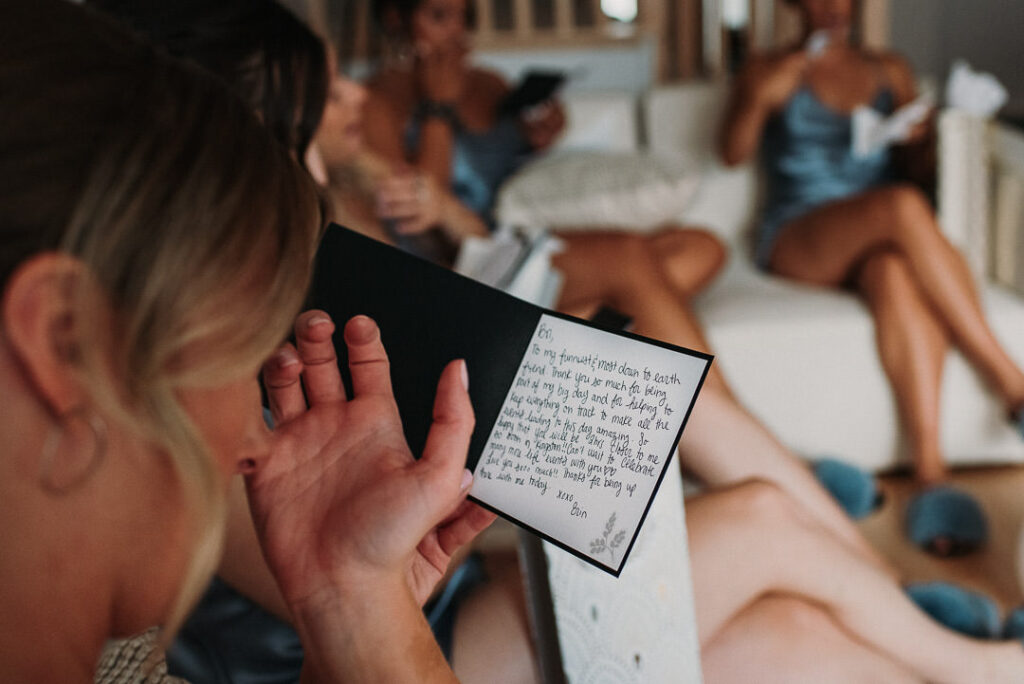 To my funniest & most down to earth
friend. Thank you so much for being
part of my big day and for helping to
keep everything on track to make all the
events leading to this day amazing. So
happy that you will be closer to me
so soon in Kingston!! Can't wait to celebrate
many more life events with you ♡♡
love you sooo much!! Thanks for being up
there with me today.
xoxo